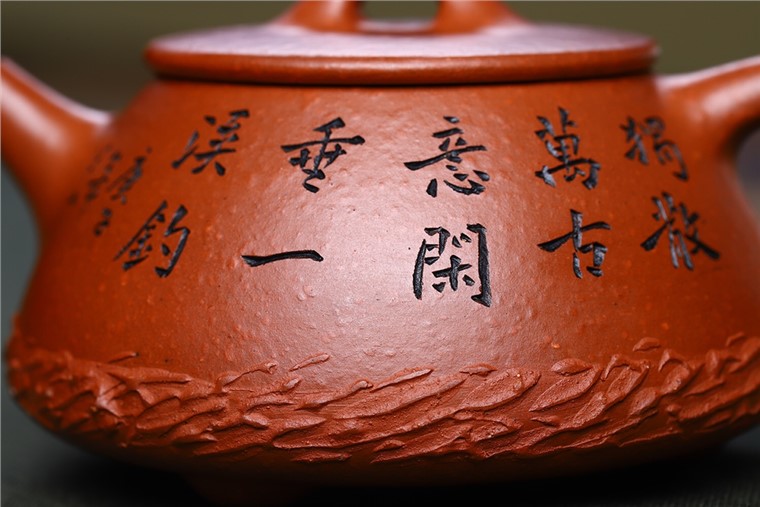 獨散
萬古
意閑
垂一
溪釣